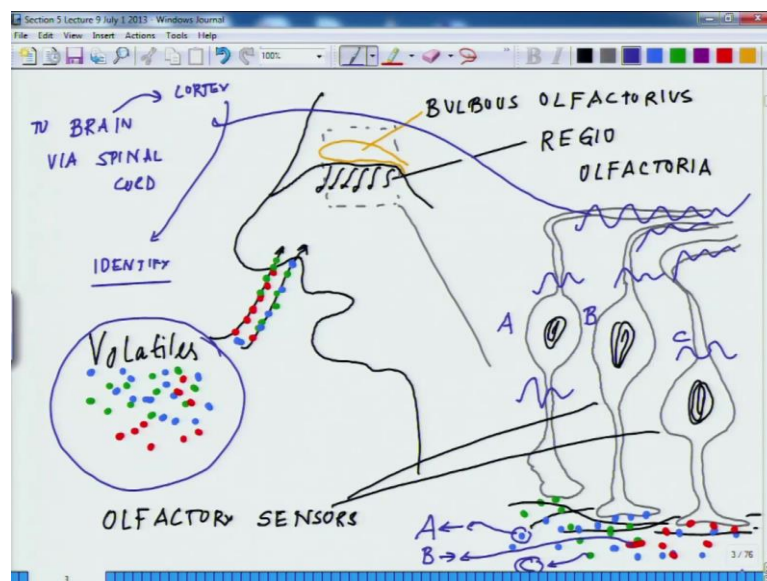 Section 5 Lecture 9 July 1 2013 - Windows Journal
File Edit View Insert Actions Tools Help
100%
B I
CORTEX
TO BRAIN
VIA SPINAL
CORD
IDENTIFY
BULBOUS OLFACTORIUS
REGIO
OLFACTORIA
A
B
C
Volatiles
OLFACTORY SENSORS
A
B
C
3 / 76
3